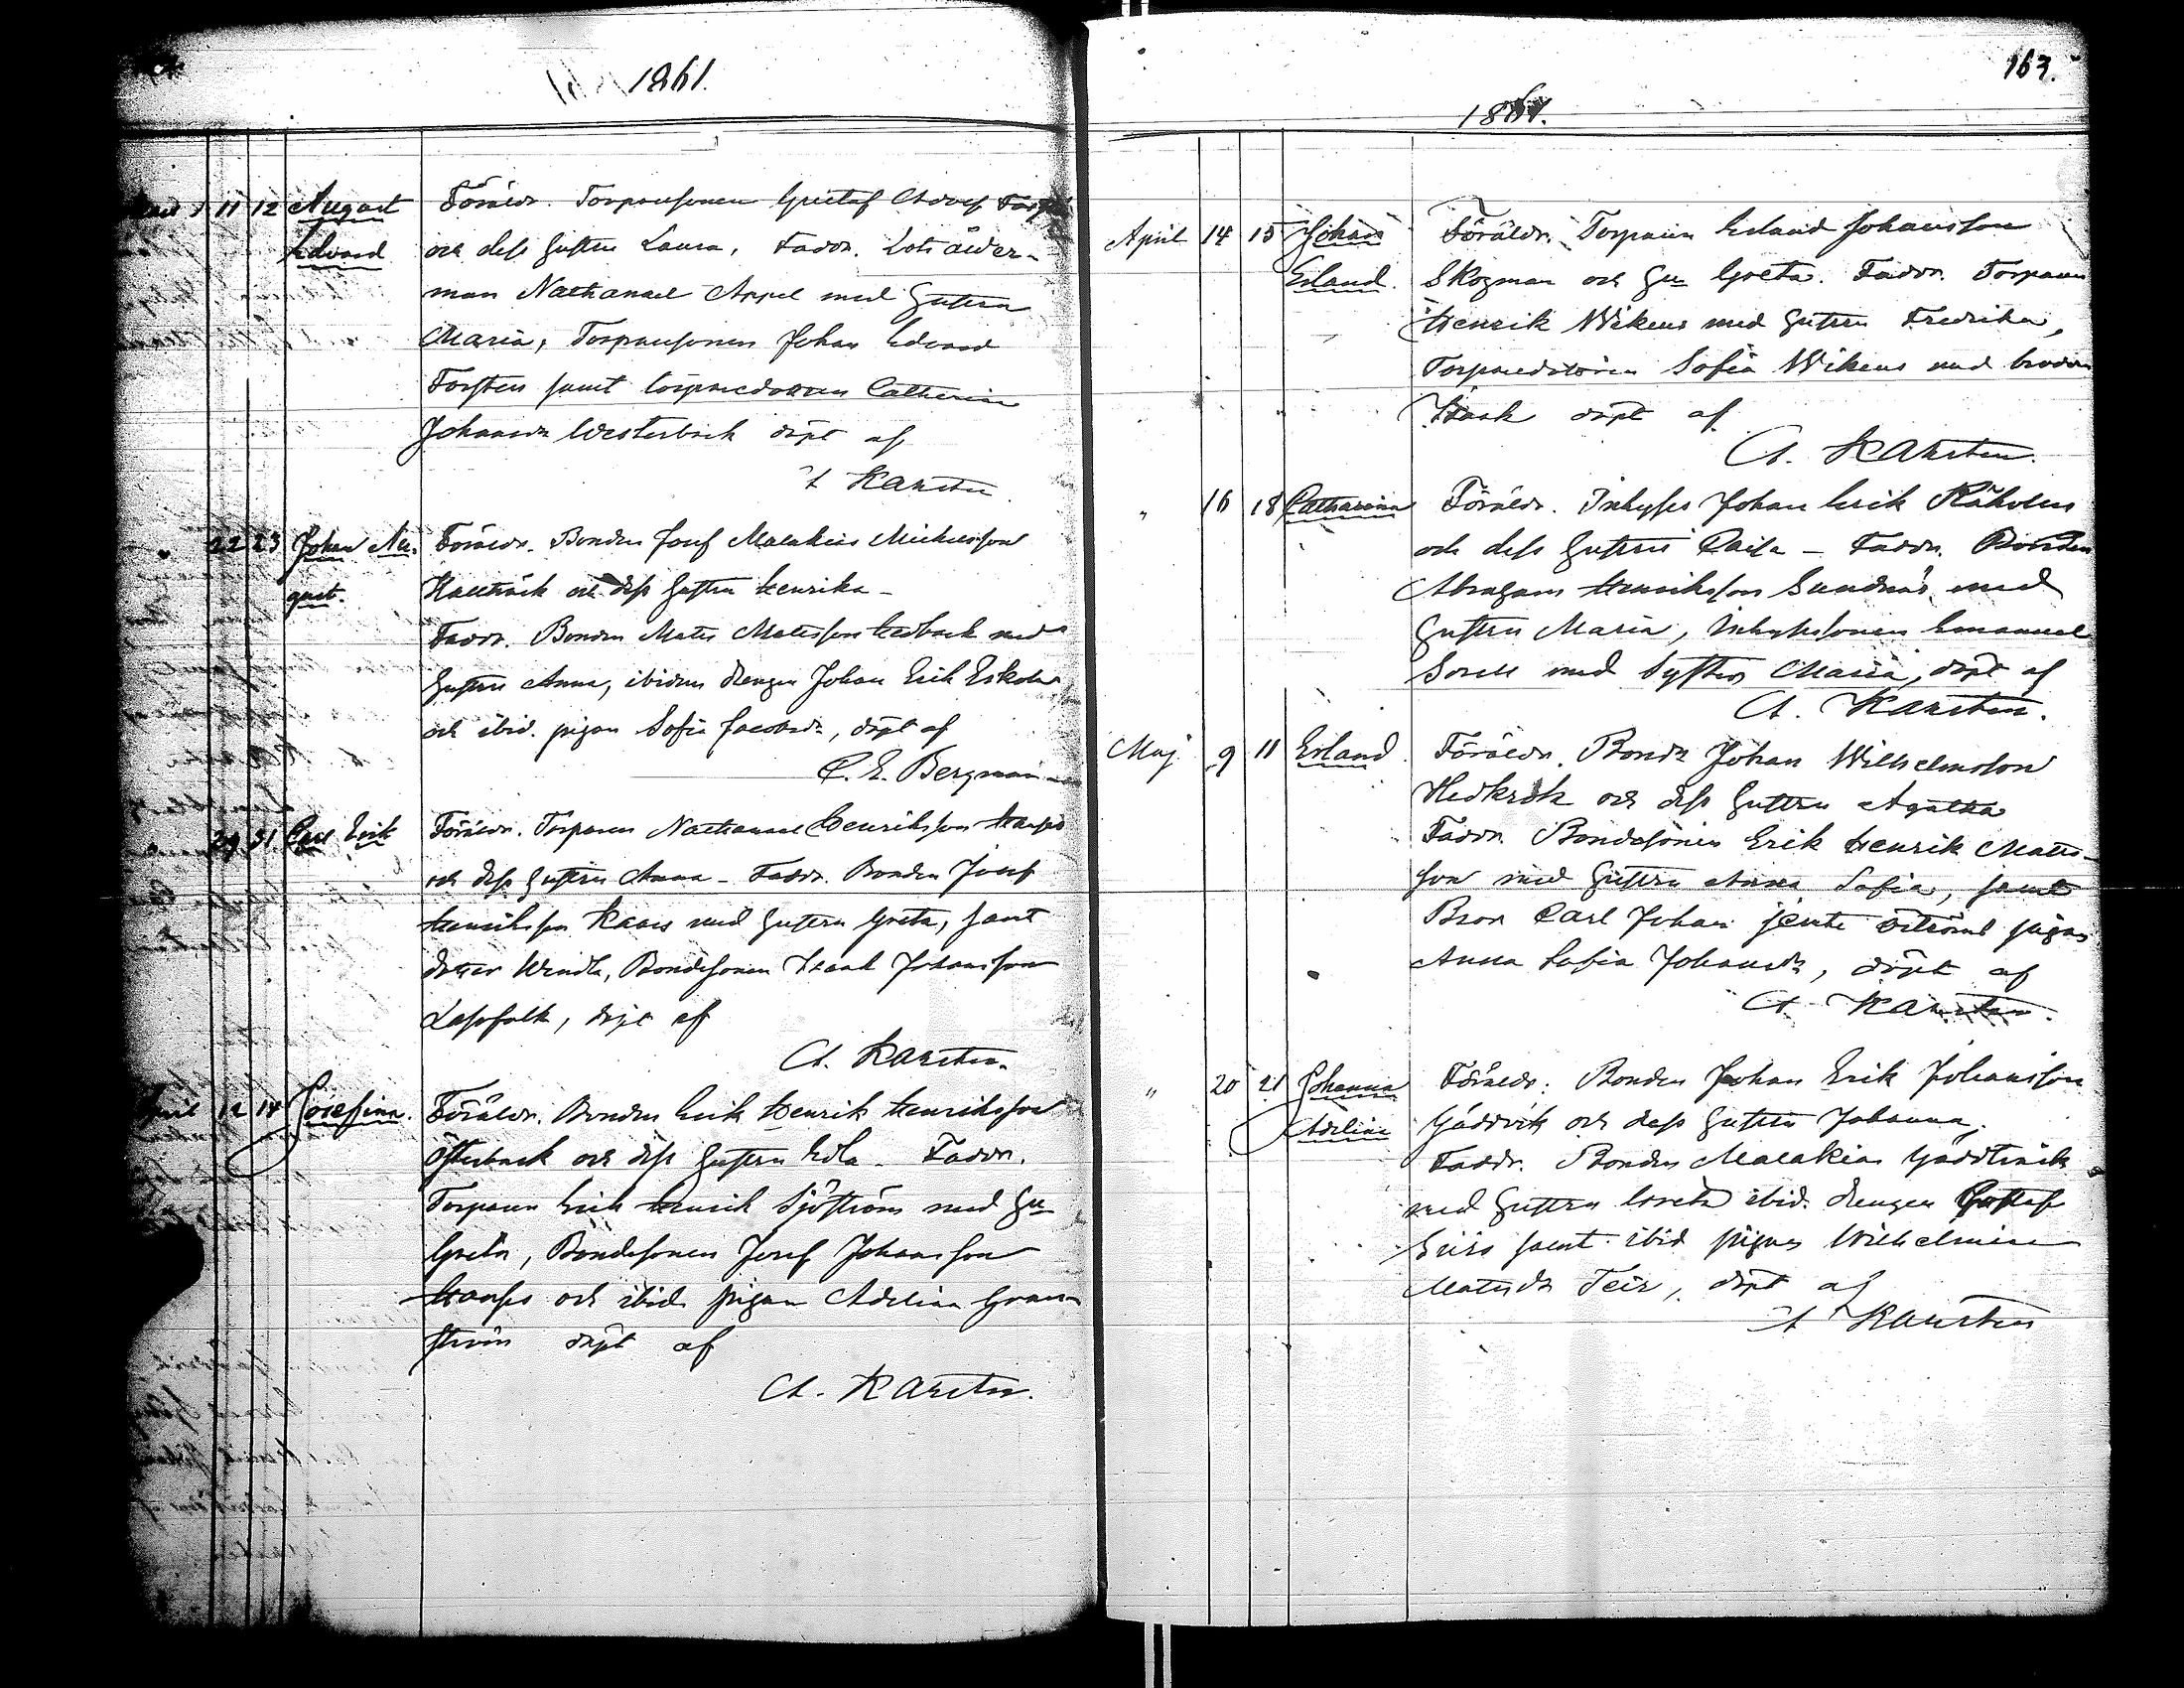 1861.
11 12 August Föräldr. Torparesonen Gustaf Adolf
Edvard och dess hustru Laura, Faddr. Lotsålder-
man Nathanael Appel med hustru
Maria, Torparesonen Johan Edvard
Forsten samt torparedottren Catharina
Johansdr Westerback döpt af
A Karsten
" 22 23 Johan Au- Föräldr. Bonden Josef Malakias Mickelsson
gust. och dess hustru Henrika –
Faddr. Bonden Matts Mattsson Hedback med
hustru Anna, ibidem drengen Johan Erik
och ibid. pigan Sofia Jacobsdr, döpt af
C. E. Bergman
29 31 Carl Erik Föräldr. Torparen Nathanael Henriksson
och dess hustru Anna – Faddr. Bonden Josef
Henriksson Kaars med hustru Greta, samt
dotter Wendla, Bondesonen Isaak Johansson
Lappfolk, döpt af
A. Karsten.
April 12 14 Josefina. Föräldr. Bonden Erik Henrik Henriksson
Österback och dess hustru Edla – Faddr.
Torparen Erik Henrik Sjöström med hu
Greta, Bondesonen Josef Johansson
och ibid pigan Adelina Gran-
ström döpt af
A. Karsten.
163.
1861.
April 14 15 Johan Föräldr. Torparen Erland Johansson
Erland. Skogman och hu Greta. Faddr. Torparen
Henrik Wikens med hustru Fredrika,
Torparedottren Sofia Wikens med brodren
Isaak döpt af
A. Karsten.
" 16 18 Catharina Föräldr. Inhyses Johan Erik Råholm
och dess hustru Caisa – Faddr. Bonden
Abraham Henriksson Sundnäs med
hustru Maria, Inhysessonen Emanuel
med Syster Maria, döpt af
A. Karsten.
Maj 9 11 Erland Föräldr. Bond: Johan Wilhelmsson
Hedkrok och dess hustru Agatha
Faddr. Bondesonen Erik Henrik Matts-
son med hustru Anna Sofia, samt
Bror Carl Johan jemte pigan
Anna Sofia Johansdr, döpt af
A. Karsten.
" 20 21 Johanna Föräldr. Bonden Johan Erik Johansson
Adelina Gäddvik och dess hustru Johanna,
Faddr. Bonden Malakias Gäddträsk
med hustru Greta ibid. drengen Gustaf
samt ibid pigan Wilhelmina
Mattsdr Teir, döpt af
A Karsten